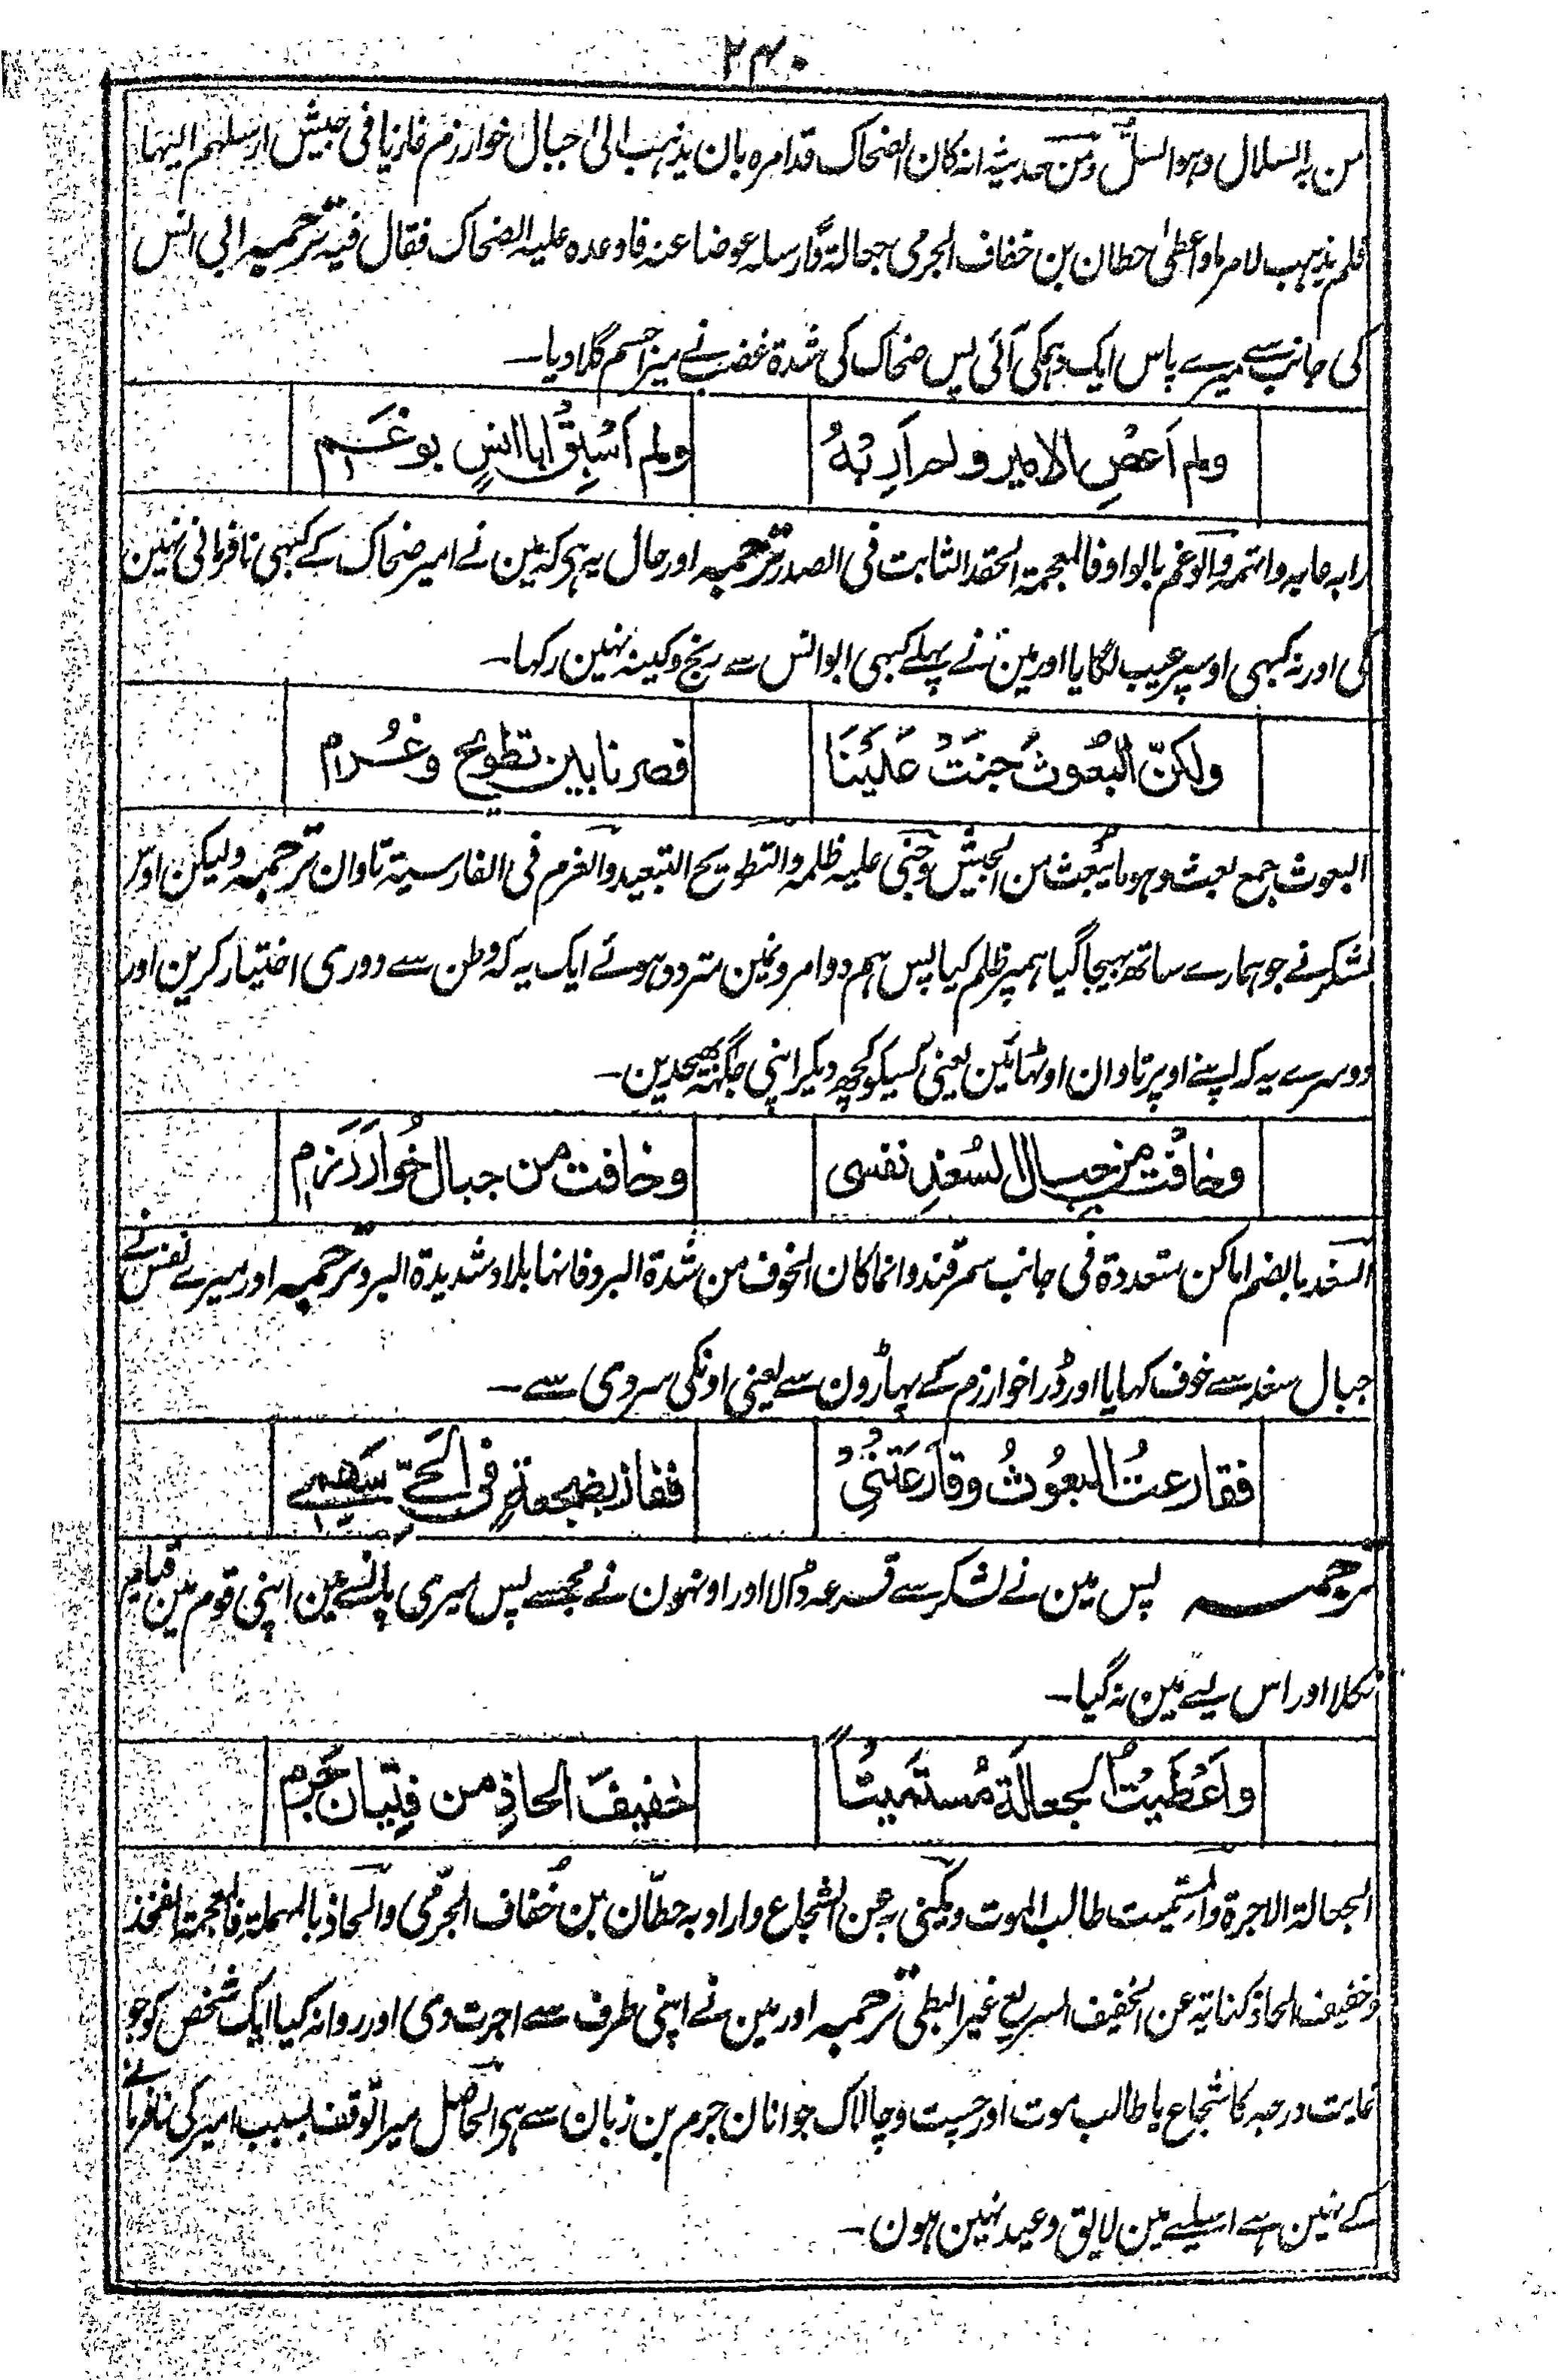 ۲۴۰
من بہ السلال وہو السلّ ومن حدیثہ انہ کان الضحاک قد امرہ بان یذہب الیٰ جبال خوارزم غازیا فی جیش ارسلہم الیہا
فلم یذہب لامر ما و اعطیٰ حطان بن خفاف الجرمی جعالۃ وارسلہ عوضا عنہ فاوعدہ علیہ الضحاک فقال فیہ ترجمہ ابی انس
کی جانب سے میرے پاس ایک دہمکی آئی پس ضحاک کی شدۃ غضب نے میرا جسم گلا دیا۔
ولم اَعْصِ الامیر ولم اَرِبْهُ ولم اَسْبِقْ ابا انسٍ بوغم
رابہ عابہ واتہمہ والوغم بالواو فالمعجمۃ الحقد الثابت فی الصدر ترجمہ اور حال یہ ہی کہ مین نے امیر ضحاک کے کبہی نافرمانی نہین
کی اور نہ کبہی اوسپر عیب لگایا اور مین نے پہلے کبہی ابو انس سے رنج و کینہ نہین رکہا۔
ولکنّ البُعُوثَ جنَتْ عَلَیْنَا فصرنا بین تطویح وغُرم
البعوث جمع بعث وہو ما یُبعث من الجیش وجنی علیہ ظلمہ والتطویح التبعید والغرم فی الفارسیۃ تاوان ترجمہ ولیکن اوس
لشکر نے جو ہمارے ساتھ بہیجا گیا ہمپر ظلم کیا پس ہم دو امرونمین متردد ہوئے ایک یہ کہ وطن سے دوری اختیار کرین اور
دوسرے یہ کہ اپنے اوپر تاوان اوٹہائین یعنی کسیکو کچھ دیکر اپنی جگہہ بھیجدین۔
وخافَتْ من جبال السُغدِ نفسی وخافت من جبال خُوارَرَزم
السغد بالضم اماکن متعددۃ فی جانب سمرقند وانما کان الخوف من شدۃ البرد فانہا بلاد شدیدۃ البرد ترجمہ اور میرے نفس نے
جبال سغد سے خوف کہایا اور ڈرا خوارزم کے پہاڑون سے یعنی اونکی سردی سے۔
فقارعتُ البعُوثُ وقارَعَتنِیْ ففاز بضجعةٍ فی الحَیّ سَهمی
ترجمہ پس مین نے لشکر سے قرعہ ڈالا اور اونہون نے مجسے پس میری پانسے مین اپنی قوم مین قیام
نکلا اور اس لیے مین نہ گیا۔
واَعْطَیْتُ الجعالَة مُسْتَمِیتاً خفیفَ الحاذِ من فِتْیَان جَرم
الجعالۃ الاجرۃ والمستمیت طالب الموت ویکنی بہ عن الشجاع واراد بہ حطّان بن خُفاف الجرمی والحاذ بالمہملۃ فالمعجمۃ الفخذ
وخفیف الحاذ کنایۃ عن الخفیف السریع غیر البطی ترجمہ اور مین نے اپنی طرف سے اجرت دی اور روانہ کیا ایک شخص کو جو
نہایت درجہ کا شجاع یا طالب موت اور چست و چالاک جوانان جرم بن زبان سے ہی الحاصل میرا توقف بسبب امیر کی نافرمانی
کے نہین ہے اسلیے مین لایق وعید نہین ہون۔